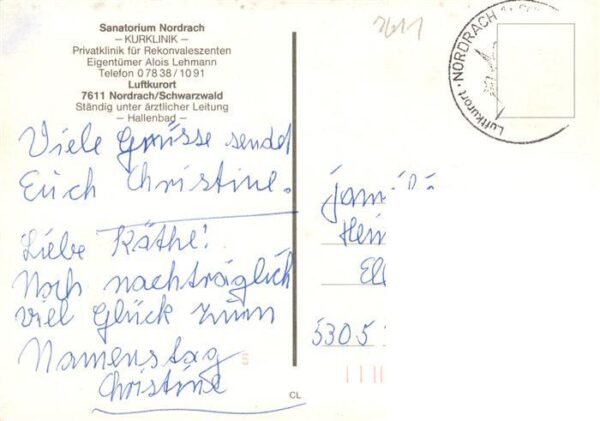 Sanatorium Nordrach
– KURKLINIK –
Privatklinik für Rekonvaleszenten
Eigentümer Alois Lehmann
Telefon 0 78 38 / 10 91
Luftkurort
7611 Nordrach/Schwarzwald
Ständig unter ärztlicher Leitung
– Hallenbad –
Viele Grüsse sendet
Euch Christine.
Liebe Käthe!
Noch nachträglich
viel Glück zum
Namenstag
Christine
7611
Luftkurort · NORDRACH
Fam
Hein
5305
CL